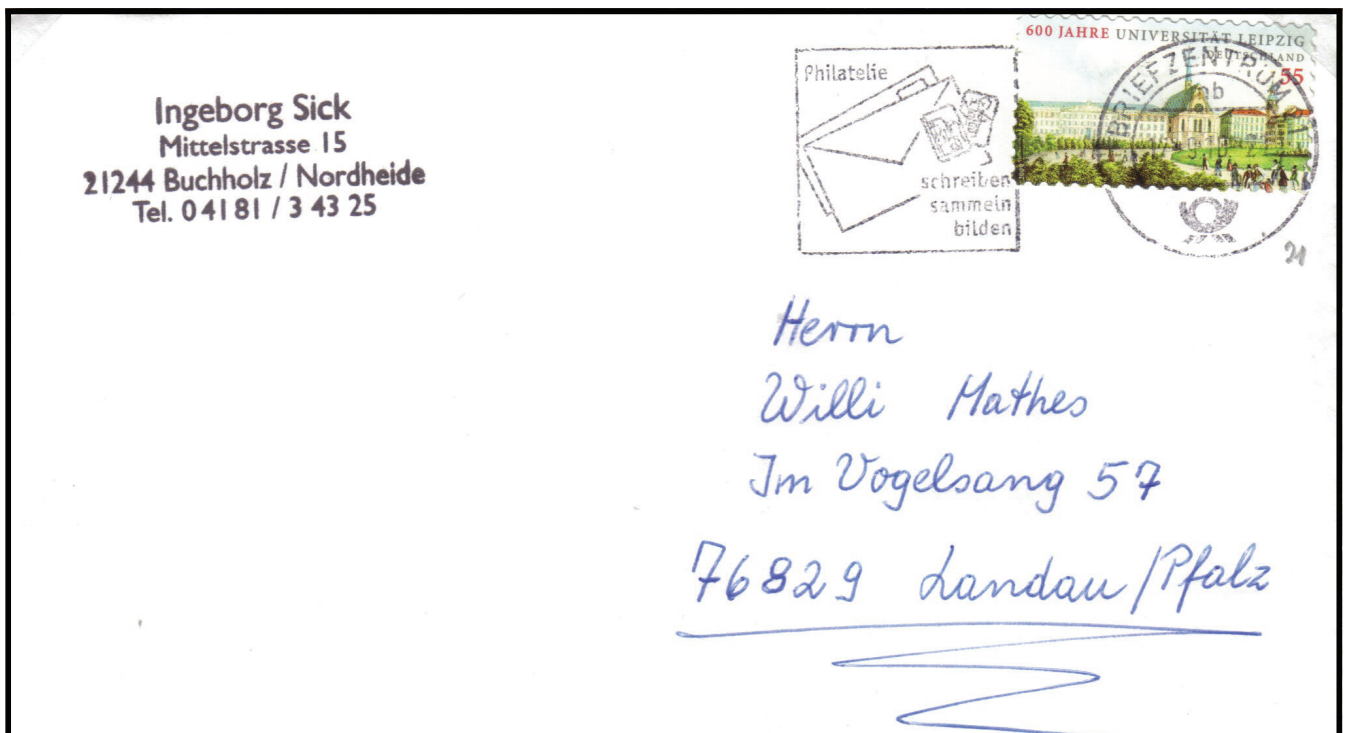 Ingeborg Sick
Mittelstrasse 15
21244 Buchholz / Nordheide
Tel. 04181 / 3 43 25
Philatelie
schreiben
sammeln
bilden
600 JAHRE UNIVERSITÄT LEIPZIG
DEUTSCHLAND
55
BRIEFZENTRUM 21
mb
21
Herrn
Willi Mathes
Im Vogelsang 57
76829 Landau/Pfalz